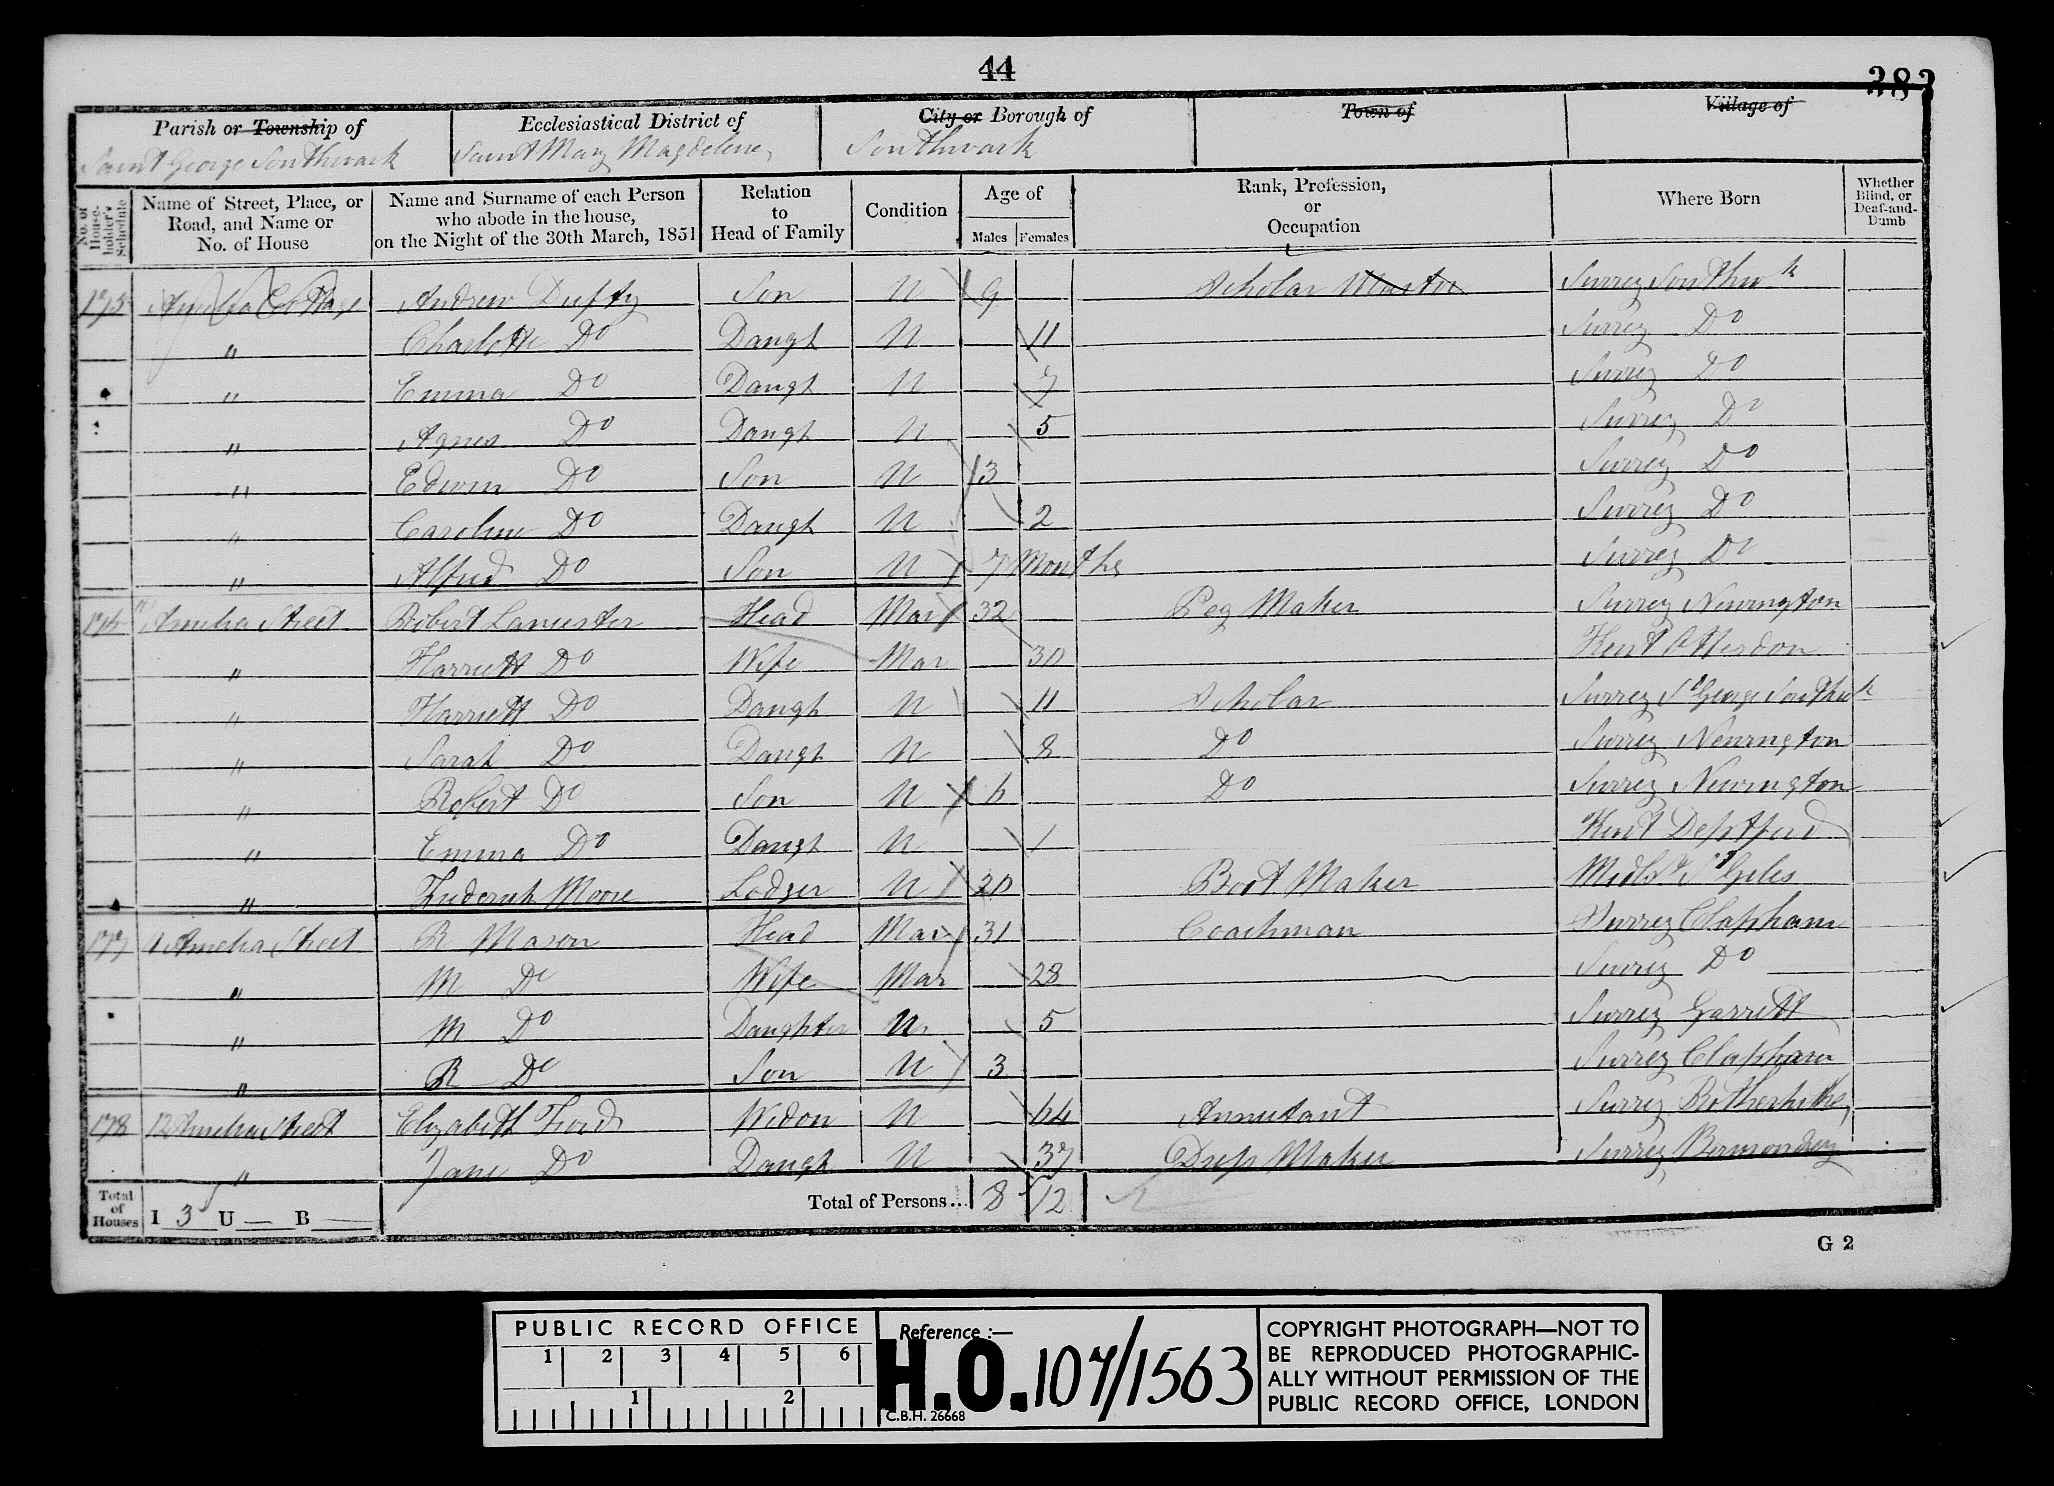 44
383
Parish or Township of Ecclesiastical District of City or Borough of Town of Village of
Saint George Southwark Saint Mary Magdelene Southwark
No. of Householder's Schedule Name of Street, Place, or Road, and Name or No. of House Name and Surname of each Person who abode in the house, on the Night of the 30th March, 1851 Relation to Head of Family Condition Age of Males Females Rank, Profession, or Occupation Where Born Whether Blind, or Deaf-and-Dumb
175 Amelia Cottage Andrew Duffy Son U 9 Scholar Surrey Southwk
" Charlotte Do Daugh U 11 Surrey Do
" Emma Do Daugh U 7 Surrey Do
" Agnes Do Daugh U 5 Surrey Do
" Edwin Do Son U 3 Surrey Do
" Caroline Do Daugh U 2 Surrey Do
" Alfred Do Son U 7 Months Surrey Do
176 Amelia Street Robert Lancaster Head Mar 32 Peg Maker Surrey Newington
" Harriett Do Wife Mar 30 Kent
" Harriett Do Daugh U 11 Scholar Surrey St George Southwk
" Sarah Do Daugh U 8 Do Surrey Newington
" Robert Do Son U 6 Do Surrey Newington
" Emma Do Daugh U 1 Kent Deptford
" Frederick Moore Lodger U 20 Boot Maker Midlsx St Giles
177 11 Amelia Street R Mason Head Mar 31 Coachman Surrey Clapham
" M Do Wife Mar 28 Surrey Do
" M Do Daughter U 5 Surrey Garrett
" R Do Son U 3 Surrey Clapham
178 12 Amelia Street Elizabeth Ford Widow U 64 Annuitant Surrey Rotherhithe
" Jane Do Daugh U 37 Dress Maker Surrey Bermondsey
Total of Houses I 3 U — B — Total of Persons... 8 12
G 2
PUBLIC RECORD OFFICE
1 2 3 4 5 6
1 2
Reference :—
H.O. 107/1563
C.B.H. 26668
COPYRIGHT PHOTOGRAPH—NOT TO
BE REPRODUCED PHOTOGRAPHIC-
ALLY WITHOUT PERMISSION OF THE
PUBLIC RECORD OFFICE, LONDON